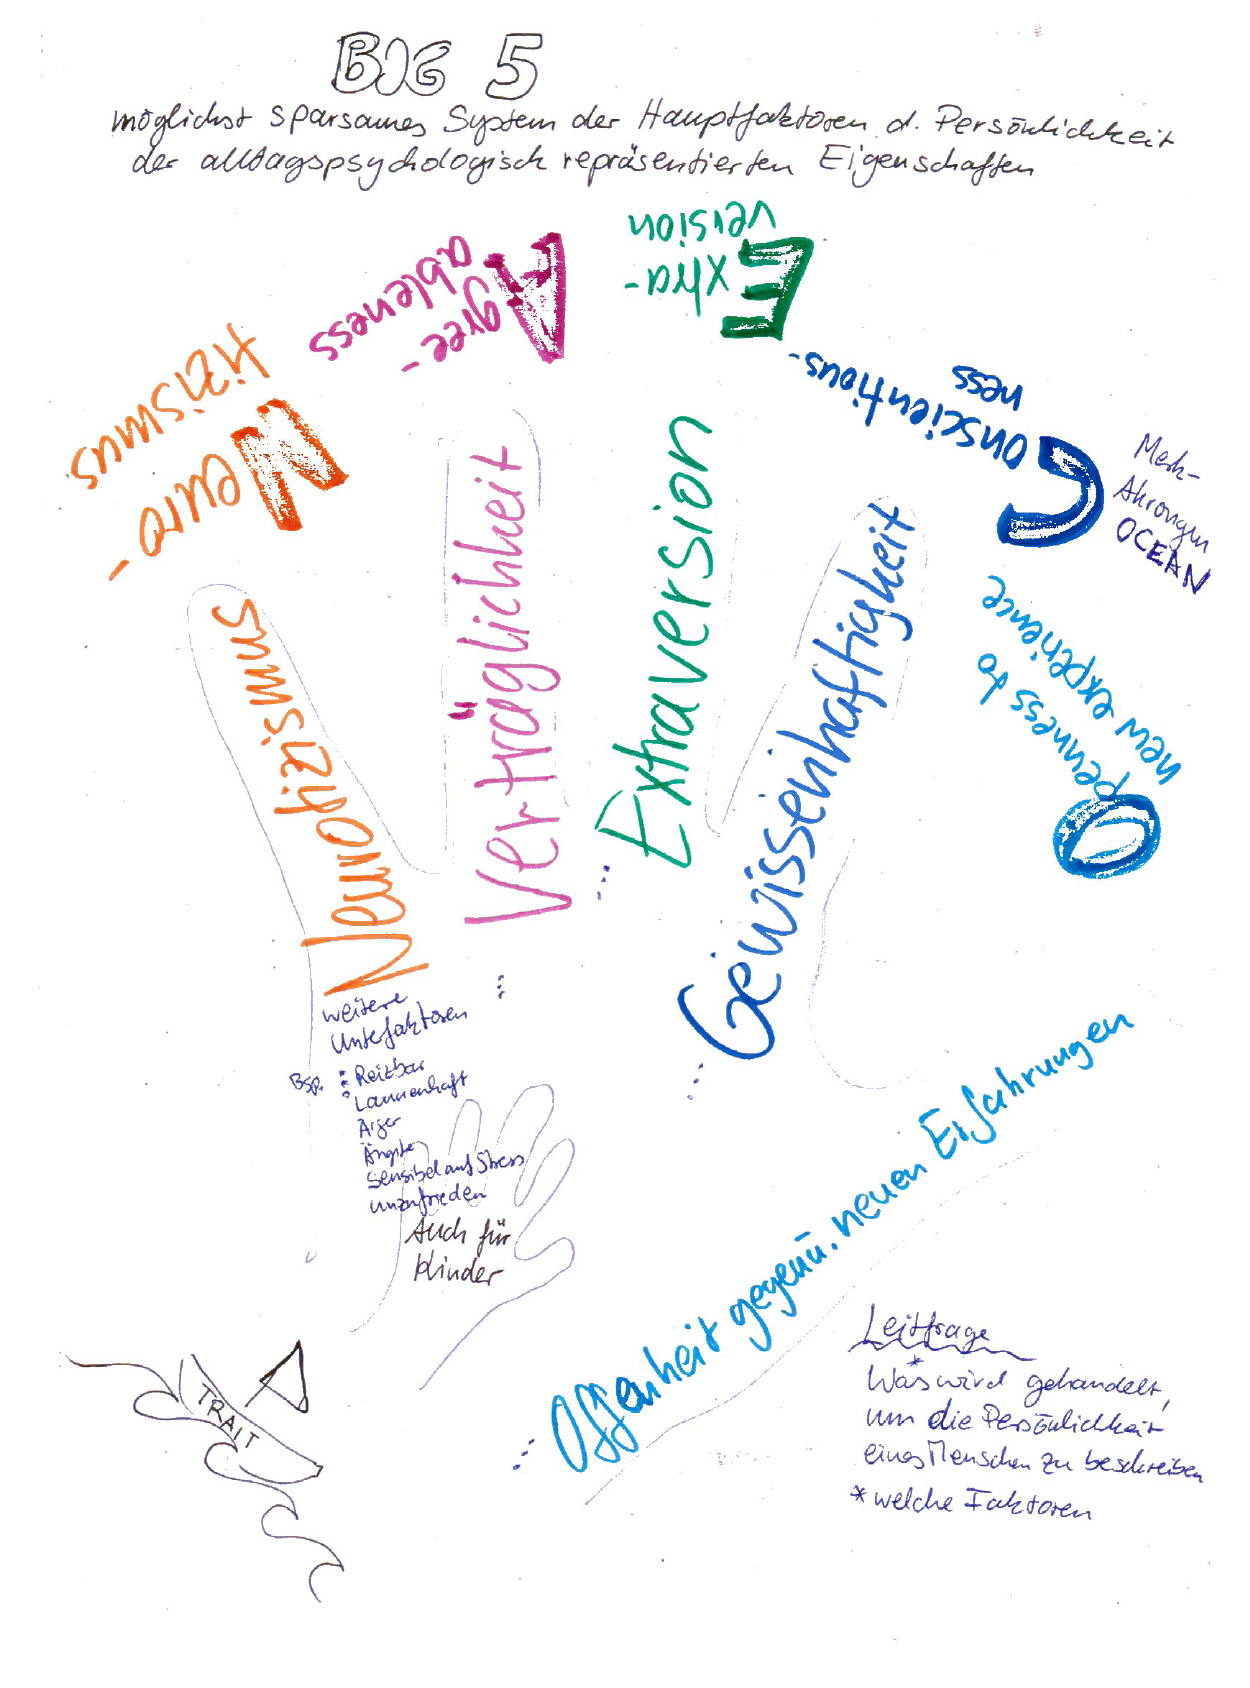 BIG 5
möglichst sparsames System der Hauptfaktoren d. Persönlichkeit
der alltagspsychologisch repräsentierten Eigenschaften
Neuro-
tizismus
Agree-
ableness
Extra-
version
Conscientious-
ness
Openness to
new experience
Merk-
Akronym
OCEAN
Neurotizismus
Verträglichkeit
...
Extraversion
...
Gewissenhaftigkeit
...
Offenheit gegenü. neuen Erfahrungen
...
weitere
Unterfaktoren
Bsp. : Reizbar
Launenhaft
Ärger
Ängste
Sensibel auf Stress
unzufrieden
Auch für
Kinder
TRAIT
Leitfrage
Was* wird gehandelt,
um die Persönlichkeit
eines Menschen zu beschreiben
* welche Faktoren